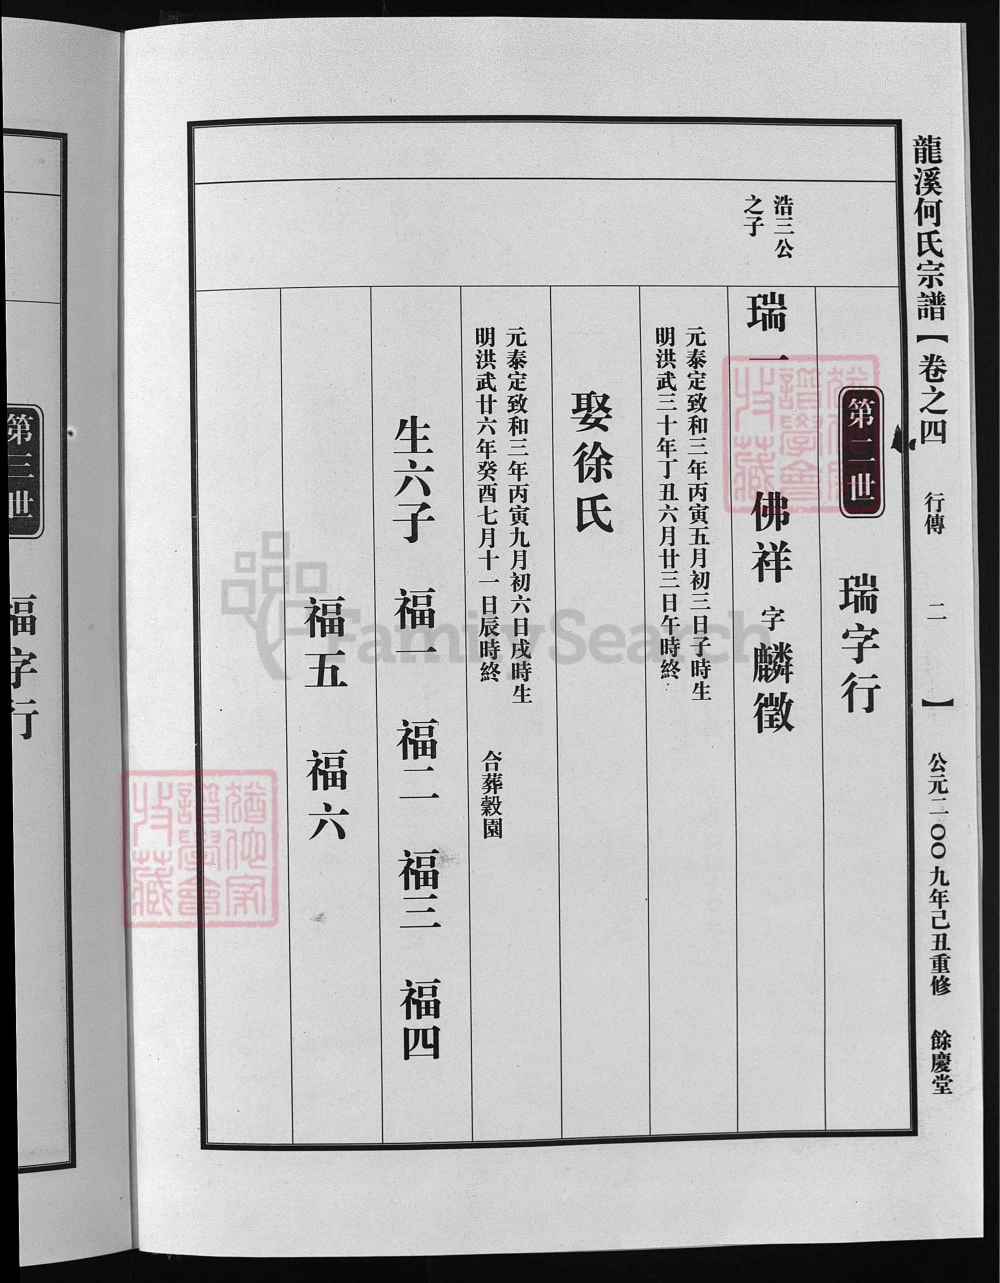 龍溪何氏宗譜【卷之四 行傳 二 】 公元二〇〇九年己丑重修 餘慶堂
第二世 瑞字行
浩三公
之子
瑞一 佛祥 字 麟徵
元泰定致和三年丙寅五月初三日子時生
明洪武三十年丁丑六月廿三日午時終
娶徐氏
元泰定致和三年丙寅九月初六日戌時生
明洪武廿六年癸酉七月十一日辰時終 合葬穀園
生六子 福一 福二 福三 福四
福五 福六
第三世 福字行
FamilySearch